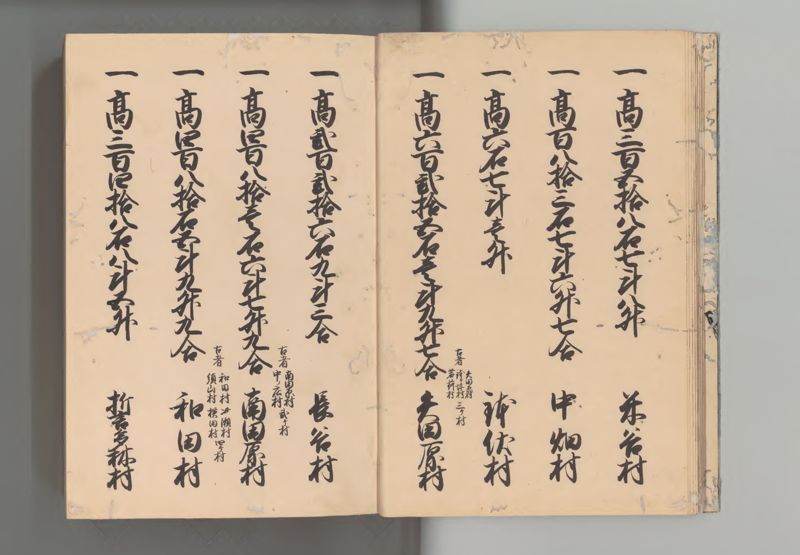 一高三百五拾八石七斗八升 米谷村
一高百八拾三石七斗六升七合 中畑村
一高六石七斗壱升 鉢伏村
古者 村 茗荷村 三ケ村
一高六百弐拾五石壱斗九升七合 矢田原村
一高弐百弐拾六石九斗三合 長谷村
古者 南田原村 中ノ庄村 弐ケ村
一高四百八拾壱石六斗七升九合 南田原村
古者 和田村 此瀬村 須山村 横田村 四ケ村
一高四百八拾石五斗九升九合 和田村
一高三百四拾八石八斗五升 誓多林村